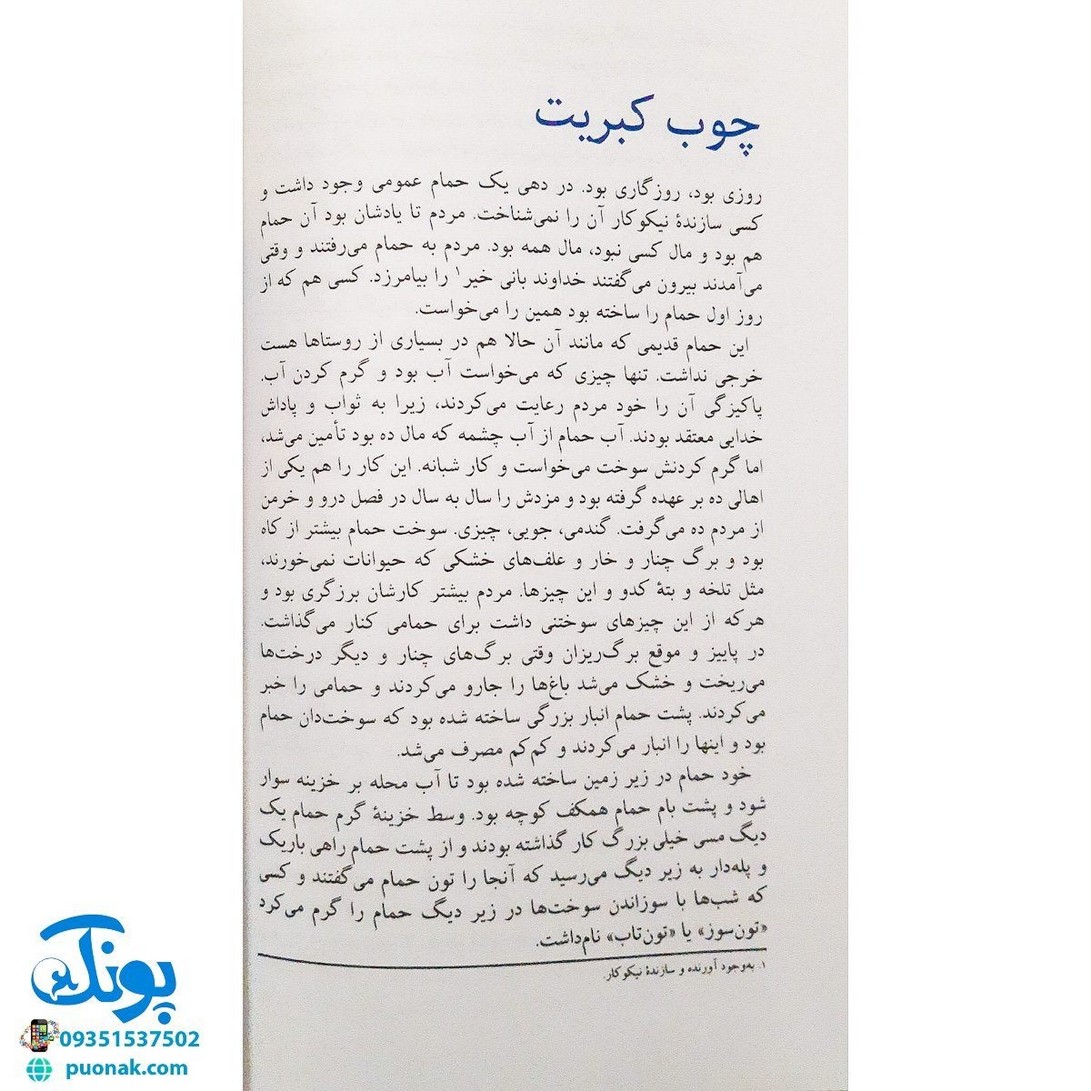 چوب کبریت
روزی بود، روزگاری بود. در دهی یک حمام عمومی وجود داشت و
کسی سازندهٔ نیکوکار آن را نمی‌شناخت. مردم تا یادشان بود آن حمام
هم بود و مال کسی نبود، مال همه بود. مردم به حمام می‌رفتند و وقتی
می‌آمدند بیرون می‌گفتند خداوند بانی خیر۱ را بیامرزد. کسی هم که از
روز اول حمام را ساخته بود همین را می‌خواست.
این حمام قدیمی که مانند آن حالا هم در بسیاری از روستاها هست
خرجی نداشت. تنها چیزی که می‌خواست آب بود و گرم کردن آب.
پاکیزگی آن را خود مردم رعایت می‌کردند، زیرا به ثواب و پاداش
خدایی معتقد بودند. آب حمام از آب چشمه که مال ده بود تأمین می‌شد،
اما گرم کردنش سوخت می‌خواست و کار شبانه. این کار را هم یکی از
اهالی ده بر عهده گرفته بود و مزدش را سال به سال در فصل درو و خرمن
از مردم ده می‌گرفت. گندمی، جویی، چیزی. سوخت حمام بیشتر از کاه
بود و برگ چنار و خار و علف‌های خشکی که حیوانات نمی‌خورند،
مثل تلخه و بتهٔ کدو و این چیزها. مردم بیشتر کارشان برزگری بود و
هرکه از این چیزهای سوختنی داشت برای حمامی کنار می‌گذاشت.
در پاییز و موقع برگ‌ریزان وقتی برگ‌های چنار و دیگر درخت‌ها
می‌ریخت و خشک می‌شد باغ‌ها را جارو می‌کردند و حمامی را خبر
می‌کردند. پشت حمام انبار بزرگی ساخته شده بود که سوخت‌دان حمام
بود و اینها را انبار می‌کردند و کم‌کم مصرف می‌شد.
خود حمام در زیر زمین ساخته شده بود تا آب محله بر خزینه سوار
شود و پشت بام حمام همکف کوچه بود. وسط خزینهٔ گرم حمام یک
دیگ مسی خیلی بزرگ کار گذاشته بودند و از پشت حمام راهی باریک
و پله‌دار به زیر دیگ می‌رسید که آنجا را تون حمام می‌گفتند و کسی
که شب‌ها با سوزاندن سوخت‌ها در زیر دیگ حمام را گرم می‌کرد
«تون‌سوز» یا «تون‌تاب» نام‌داشت.
۱. به‌وجود آورنده و سازندهٔ نیکوکار.
پونک
09351537502
puonak.com